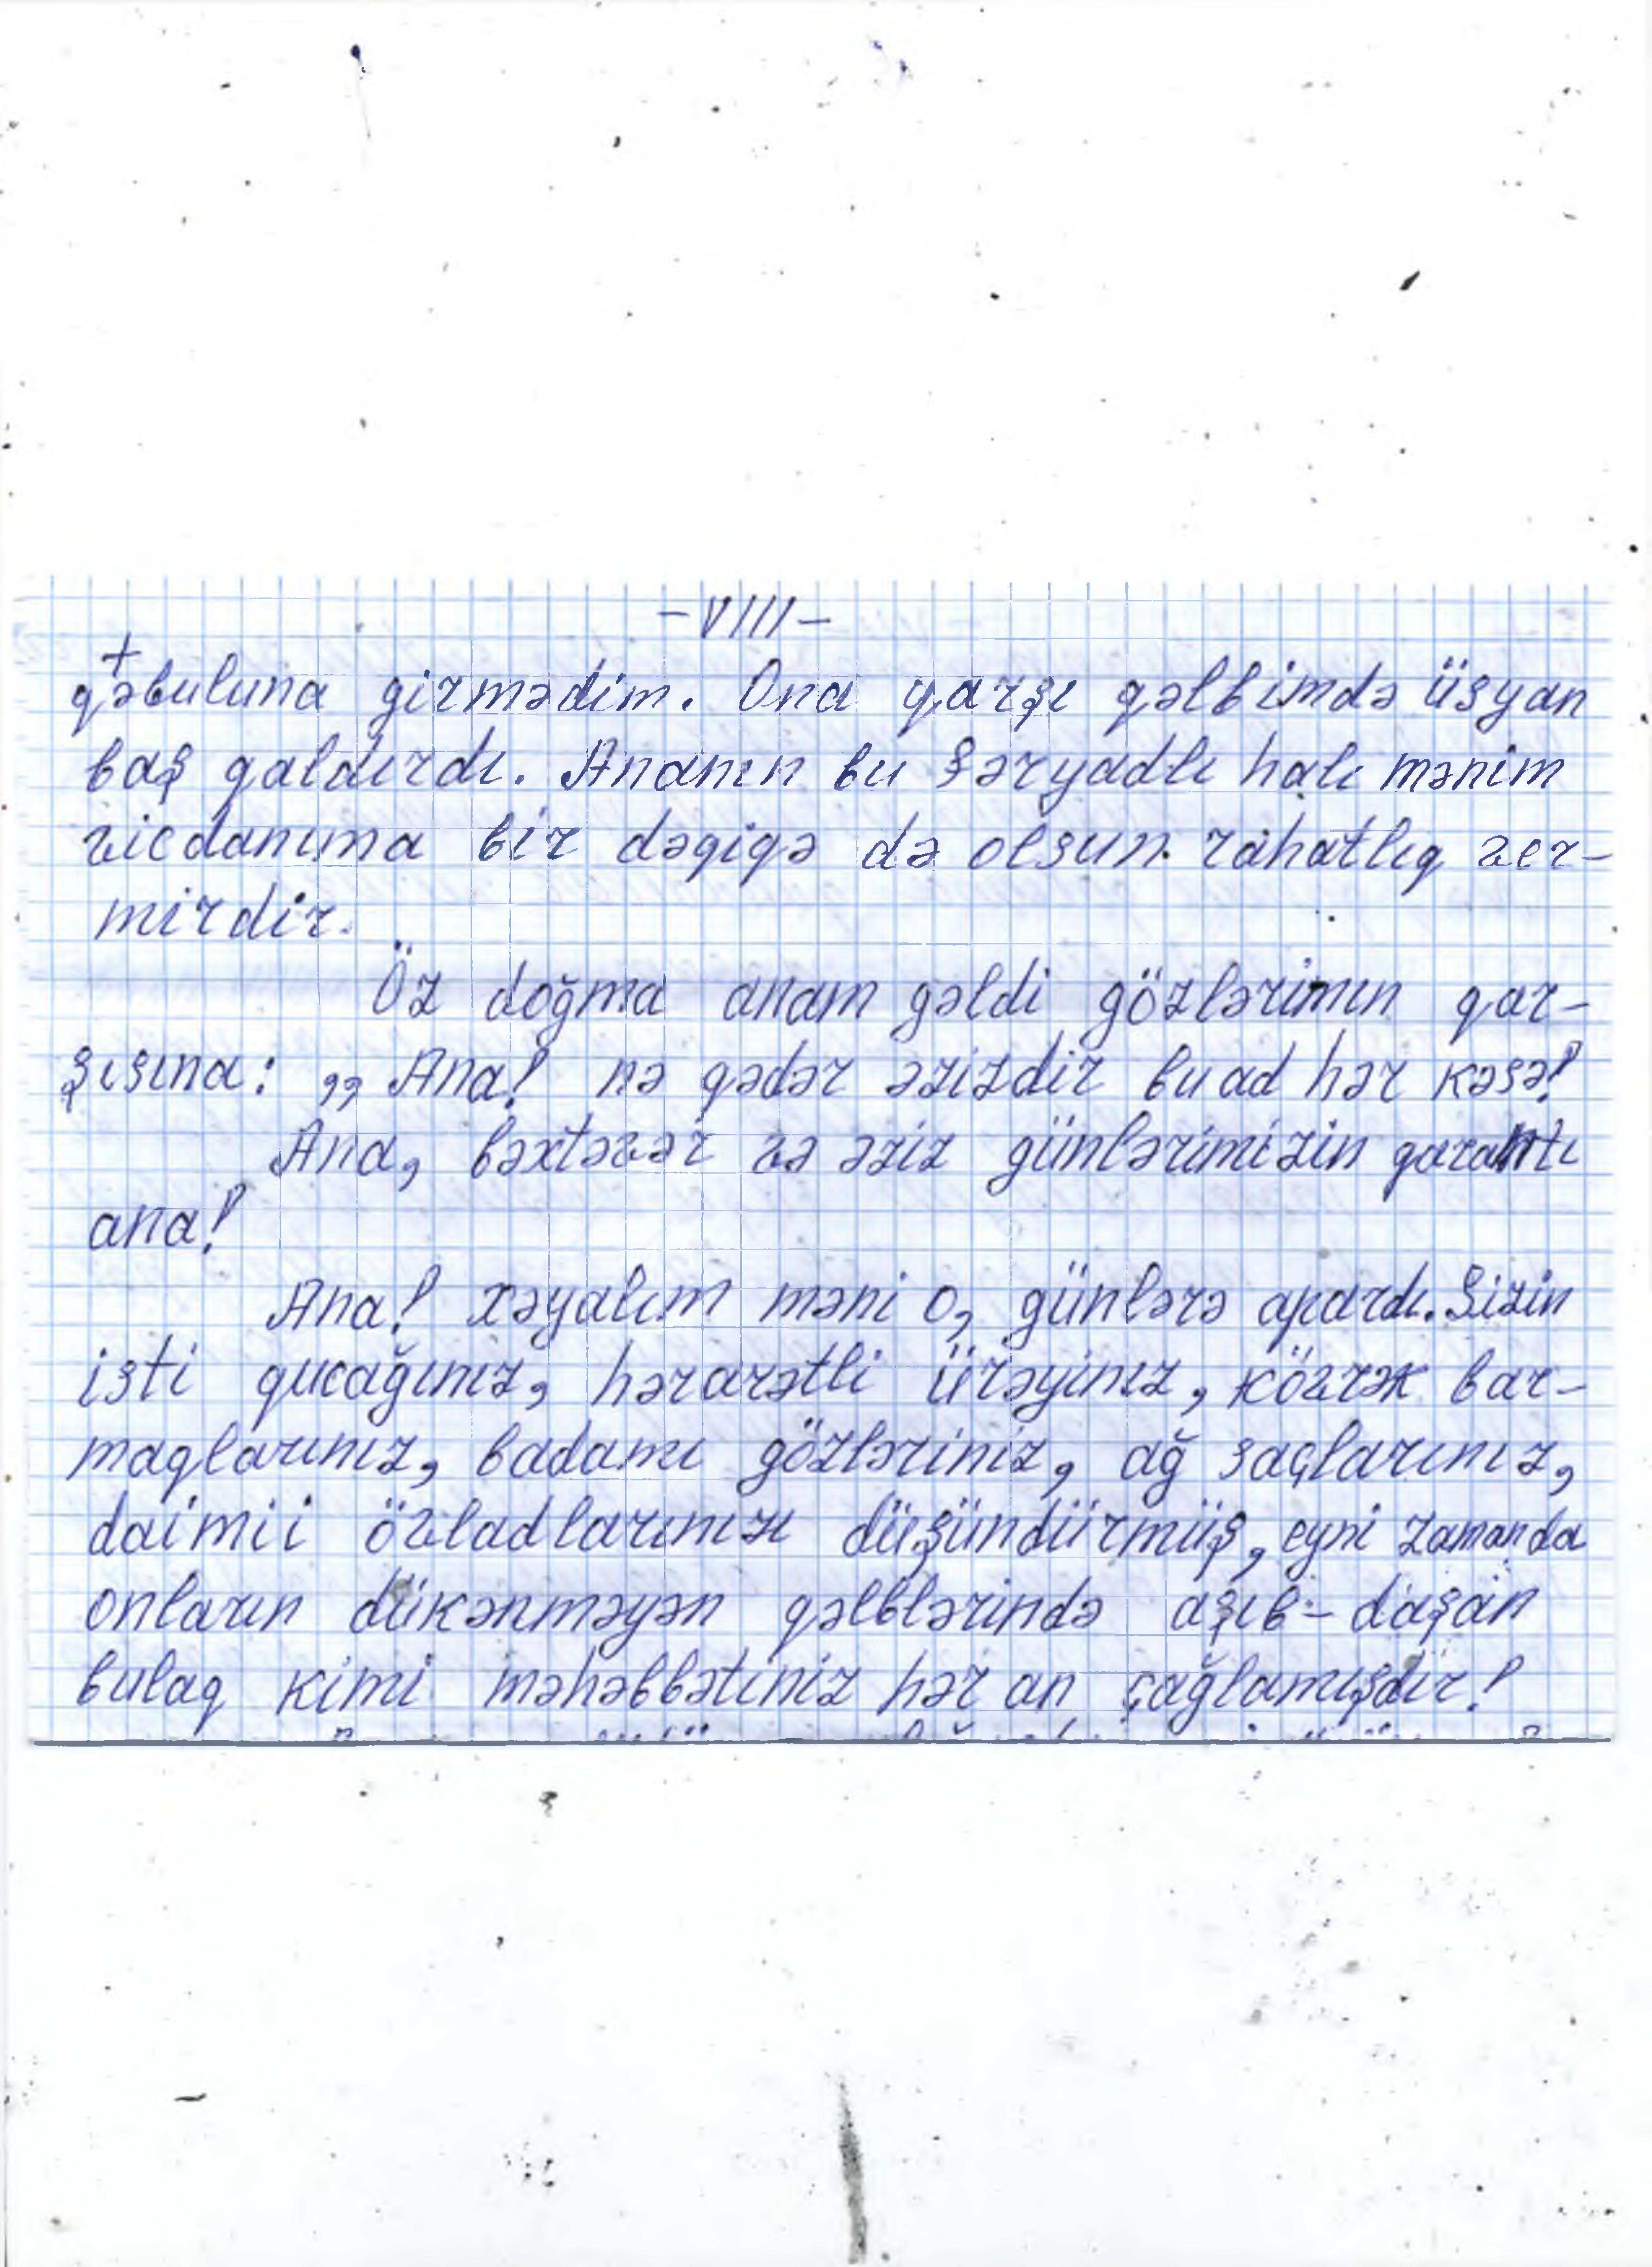 -VIII-
+
qəbuluna girmədim. Ona qarşı qəlbimdə üsyan
baş qaldırdı. Ananın bu fəryadlı halı mənim
vicdanıma bir dəqiqə də olsun rahatlıq ver-
mirdir.
Öz doğma anam gəldi gözlərimin qar-
şısına: ,, Ana! nə qədər əzizdir bu ad hər kəsə!
Ana, bəxtəvər və əziz günlərimizin qarantı
ana!
Ana! xəyalım məni o, günlərə apardı. Sizin
isti qucağınız, hərarətli ürəyiniz, kövrək bar-
maqlarınız, badamı gözləriniz, ağ saçlarınız,
daimii övladlarınızı düşündürmüş, eyni zamanda
onların dükənməyən qəlblərində aşıb-daşan
bulaq kimi məhəbbətiniz hər an çağlamışdır!